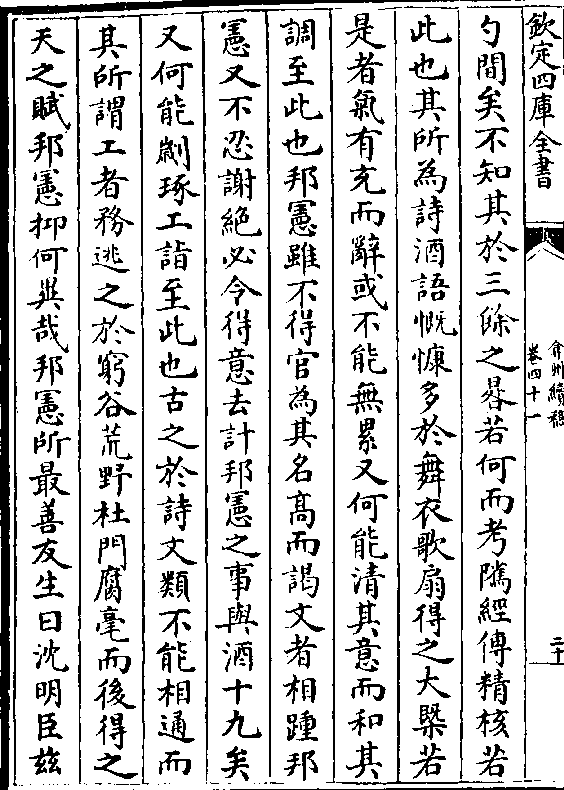 欽定四庫全書
弇州續稿
卷四十一
二十
勺間矣不知其於三餘之晷若何而考隲經傳精核若
此也其所為詩酒語慨慷多於舞衣歌扇得之大槩若
是者氣有充而辭或不能無累又何能清其意而和其
調至此也邦憲雖不得官為其名髙而謁文者相踵邦
憲又不忍謝絶必令得意去計邦憲之事與酒十九矣
又何能劌琢工詣至此也古之於詩文類不能相通而
其所謂工者務逃之於窮谷荒野杜門腐毫而後得之
天之賦邦憲抑何異哉邦憲所最善友生曰沈明臣兹